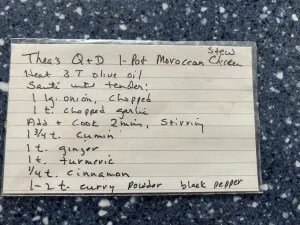 Thea's Q+D 1-Pot Moroccan Chicken Stew
Heat 3 T olive oil
Sauté until tender:
1 lg. onion, chopped
1 t. chopped garlic
Add + Cook 2 min, Stirring
1 3/4 t. Cumin
1 t. ginger
1 t. turmeric
1/4 t. cinnamon
1-2 t. curry powder black pepper